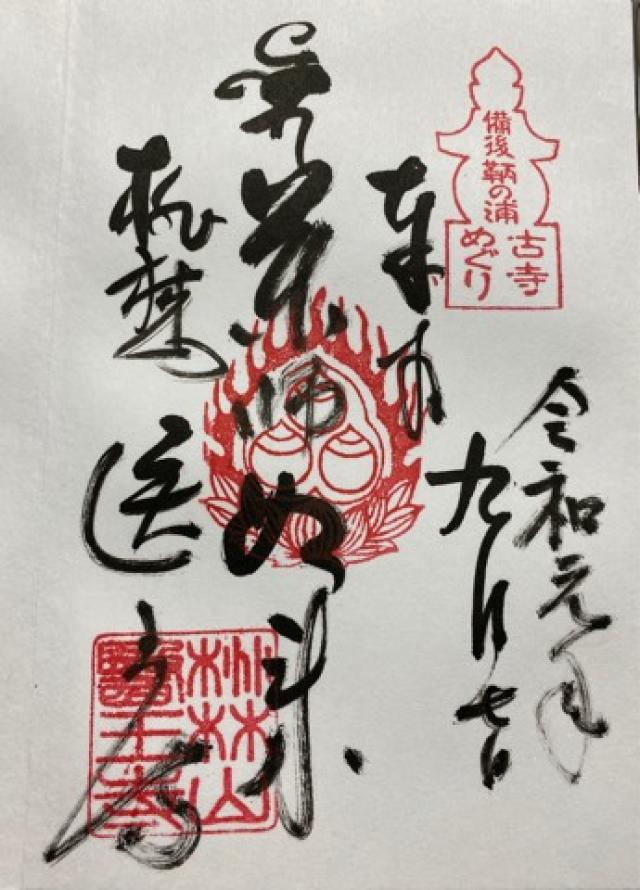 備後鞆の浦
古寺
めぐり
令和元年
九月七日
奉拝
薬師如来
桃林山
医王寺
桃林山
醫王寺